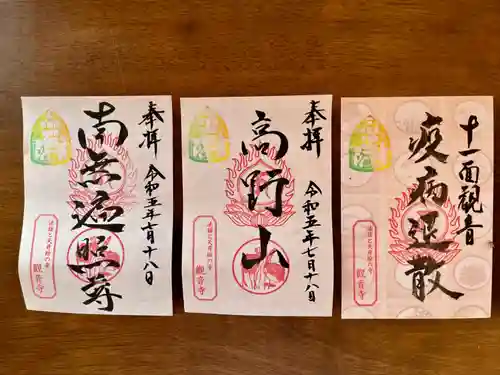 奉拝
令和五年七月十八日
南無遍照尊
観音寺
奉拝
令和五年七月十八日
高野山
観音寺
十一面観音
疫病退散
観音寺